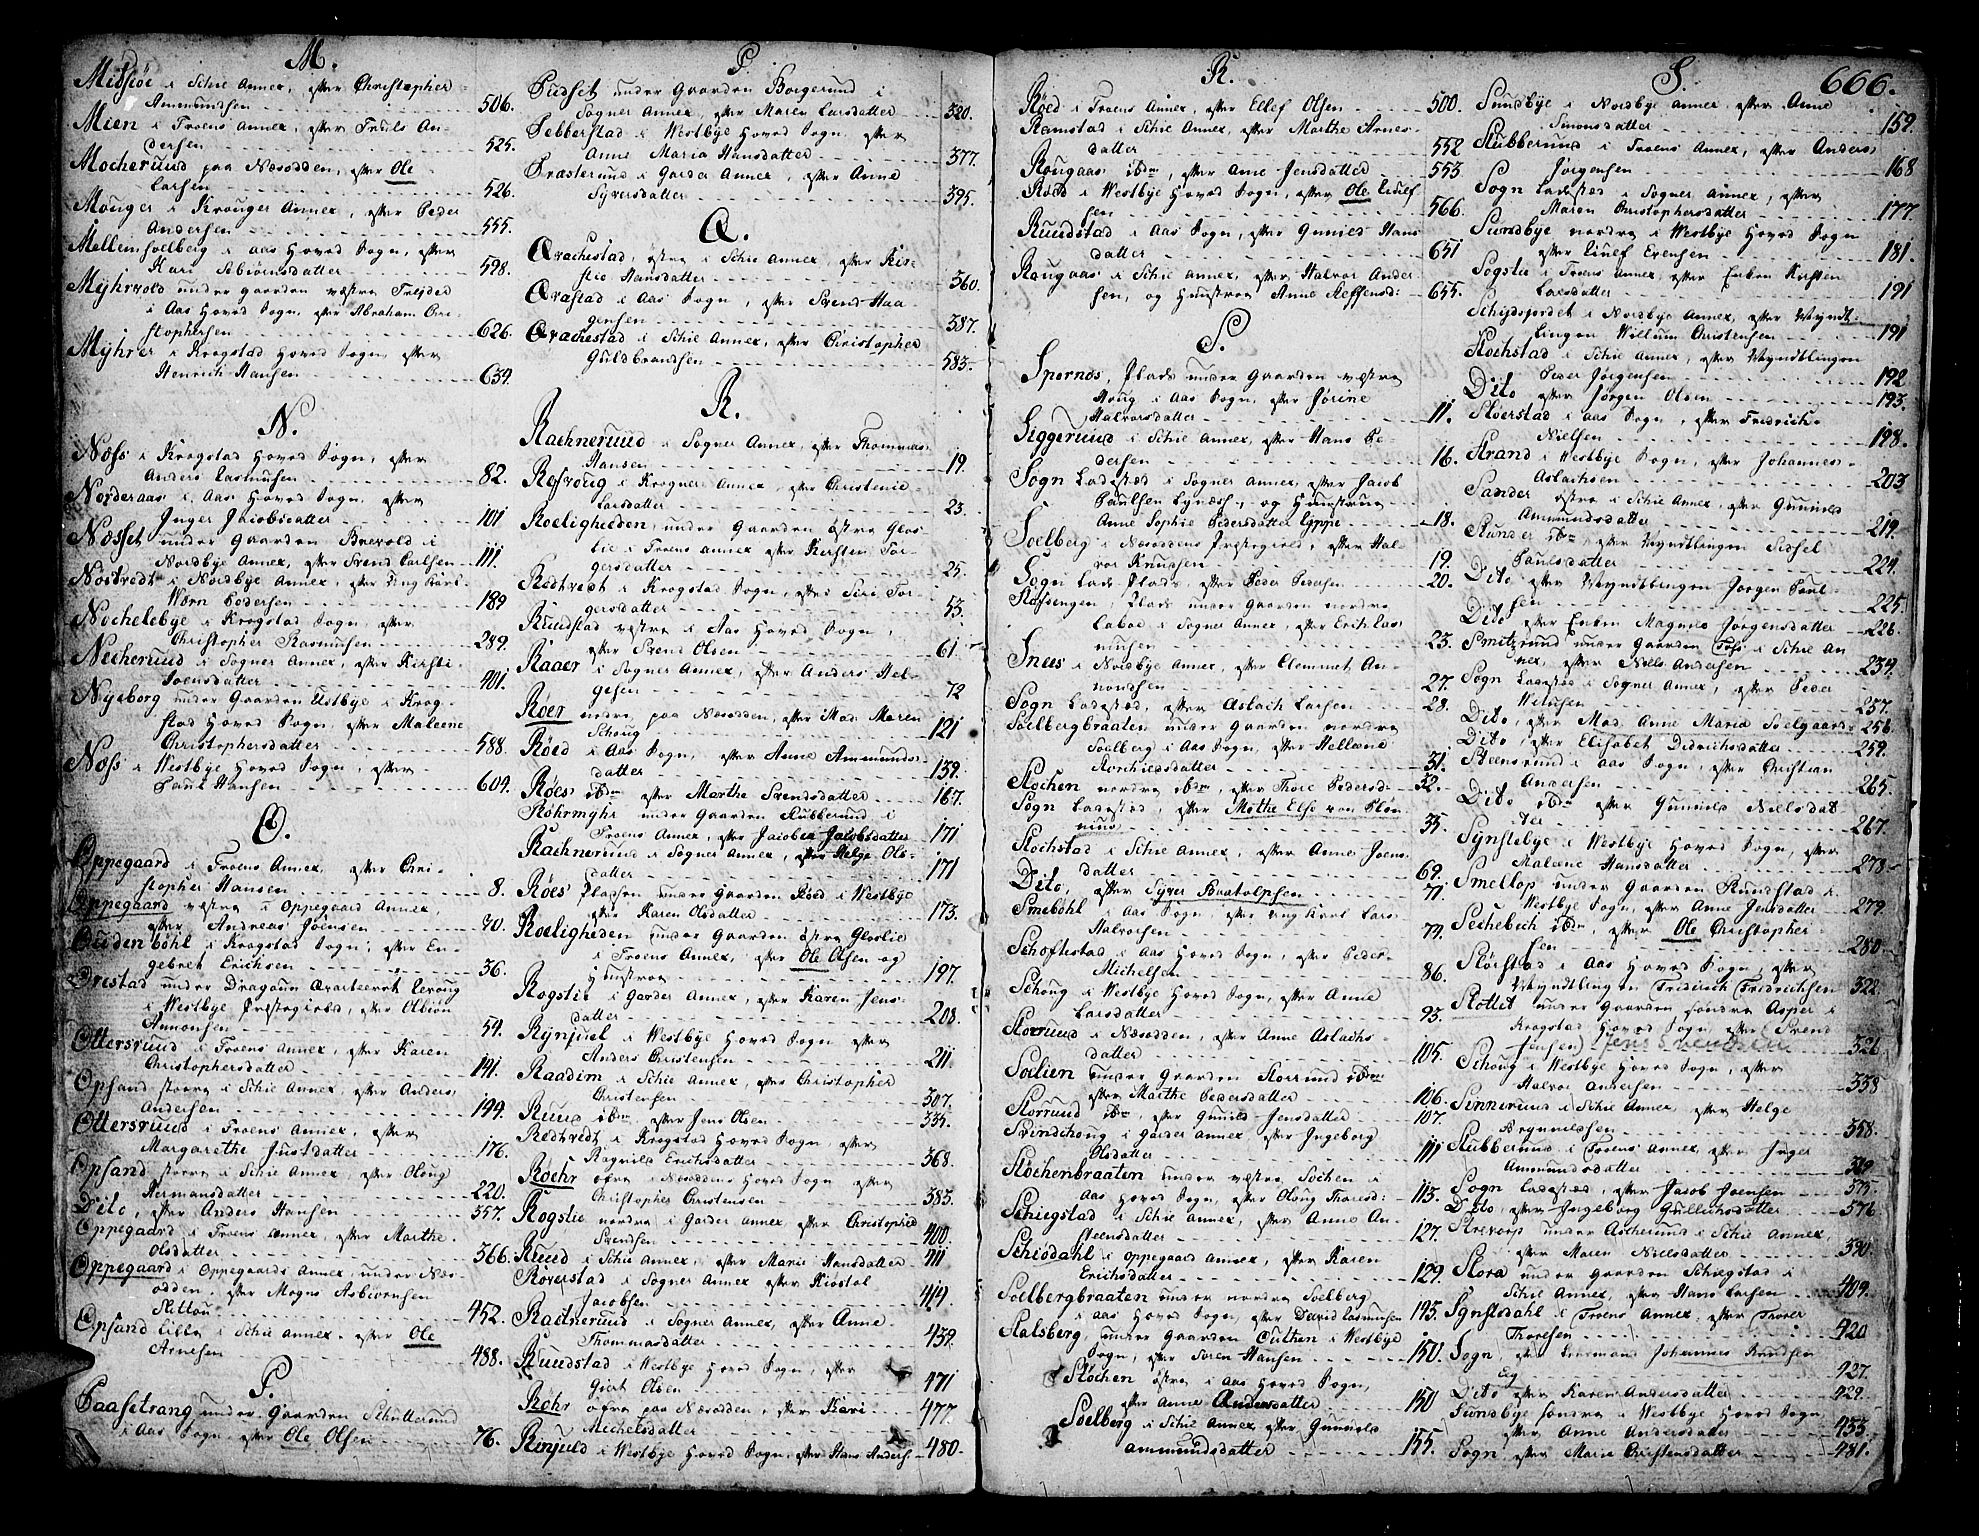 M.
Midsiöe i Schie Annex, efter Christopher
Ammundsen 506.
Mien i Froens Annex, efter Truls An-
dersen 525.
Mocherued paa Næsodden, efter Ole
Larsen 526.
Mouger i Krouger Annex, efter Peder
Andersen 555.
Mellemsoelberg i Aas Hoved Sogn, efter
Kari Asbiørnsdatter 598.
Myhrvold under gaarden væstre
i Aas Hoved Sogn, efter Abraham Chri-
stophersen 626.
Myhrer i Krogstad Hoved Sogn, efter
Henrich Hansen 639.
N.
Næss i Krogstad Hoved Sogn, efter
Anders Rasmusen 82.
Norderaas i Aas Hoved Sogn, efter
Inger Jacobsdatter 101
Næsset under Gaarden Brevold i
Nordbye Annex, efter Svend Carlsen 111.
Nöstvedt i Nordbye Annex, efter Ung Karl
Wærn Pedersen 189
Nochelebye i Krogstad Sogn, efter
Christopher Rasmusen 289.
Necherud i Sogner Annex, efter Kirsti
Joensdatter 401.
Nyeborg under Gaarden Ustbye i Krog-
stad Hoved Sogn, efter Maleene
Christophersdatter 588.
Næss i Westbye Hoved Sogn, efter
Paul Hansen 604.
O.
Oppegaard i Froens Annex, efter Chri-
stopher Hansen 8.
Oppegaard væstre i Oppegaard Annex,
efter Andreas Joensen 30.
Oudenböhl i Krogstad Sogn, efter En-
gebret Erichsen 36.
Orestad under Dragoun Qvarteeret
i Westbye Præstegield, efter Olbiön
Amonsen 54.
Ottersruud i Froens Annex, efter Karen
Christophersdatter 141.
Opsand store i Schie Annex, efter Anders
Andersen 144.
Ottersruud i Froens Annex, efter
Margarethe Justdatter 176.
Opsand store i Schie Annex, efter Oloug
Hermansdatter 220.
Dito, efter Anders Hansen 557.
Oppegaard i Froens Annex, efter Marthe
Olsdatter 366.
Oppegaard i Oppegaards Annex, under Næs-
odden, efter Mogns Asbiornsen
452.
Opsand lille i Schie Annex, efter Ole
Arnesen 488.
P.
Paasetrang under Gaarden Schutterud
i Aas Sogn, efter Ole Olsen 76.
P.
Pudset under Gaarden Borgerund i
Sogner Annex, efter Maren Larsdatter 320.
Pebberstad i Westbye Hoved Sogn, efter
Anne Maria Hansdatter 377.
Præsterund i Garder Annex, efter Anne
Syversdatter 395.
Q.
Qvachestad, østre i Schie Annex, efter Kir-
stie Hansdatter 360.
Qvastad i Aas Sogn, efter Svend Haa
gensen 387.
Qvachestad i Schie Annex, efter Christopher
Guldbrandsen 583.
R.
Rachnerund i Sogner Annex, efter Thommas
Hansen 19.
i Krogner Annex, efter Christenie
Larsdatter 23.
Roeligheden, under Gaarden østre Glos-
lie i Froens Annex efter Kirsten Tor-
gersdatter 25.
Redtvedt i Krogstad Sogn, efter Siri Tor
gersdatter 53.
Ruudstad væstre i Aas Hoved Sogn,
efter Svend Olsen 61.
Raaer i Sogner Annex, efter Anders Hel-
gesen 72
Röer nedre paa Næsodden, efter Mad. Maren
Schoug 121
Röed i Aas Sogn, efter Anne Ammunds-
datter 139.
Röes ibdm efter Marthe Svendsdatter 167.
Röhrmyhr under Gaarden Stubberund i
Froens Annex, efter Jacobea Jacobsdatter 171
Rachnerund i Sogner Annex, efter Helge Ols-
datter 171
Röes Pladsen under Gaarden Röed i Westbye
efter Karen Olsdatter 173.
Roeligheden under Gaarden østre Gloslie
i Froens Annex, efter Ole Olsen og
Hustrue 197.
Rogstie i Garder Annex, efter Karen Jens-
datter 208.
Rynjuel i Westbye Hoved Sogn, efter
Anders Christensen 211.
Raadim i Schie Annex, efter Christopher
Christensen 307.
Ruud ibdm efter Jens Olsen 334.
Redtvedt i Krogstad Hoved Sogn, efter
Ragnild Erichsdatter 368.
Roehr øfre i Næsoddens Hoved Sogn, efter
Christopher Christensen 383.
Rogstie nordre i Garder Annex, efter Christopher
Svendsen 400.
Ruud i Schie Annex, efter Marie Hansdatter 411
Roverstad i Sogner Annex efter Kiöstol
Jacobsen 414.
Rachnerund i Sogner Annex, efter Anne
Thommasdatter 439.
Ruudstad i Westbye Hoved Sogn, efter
Giert Olsen 471
Röhr øfre paa Næsodden, efter Kari
Michelsdatter 477.
Rinjuld i Westbye Hoved Sogn, efter Hans Anders 480.
R.
Röed i Froens Annex, efter Ellef Olsen 500.
Ramstad i Schie Annex, efter Marthe Arnes-
datter 552
Rougaas ibdm, efter Ane Jensdatter 553.
Röed i Westbye Hoved Sogn, efter Ole Eilef
sen 566.
Ruudstad i Aas Sogn, efter Gunild Hans
datter 651
Raugaas i Schie Annex, efter Halvor Ander
sen, og Huustroe Anne Steffensd: 655.
S.
Spernæs, Plads under Gaarden væstre
Houg i Aas Sogn, efter Jorine
Halvorsdatter 11.
Siggeruud i Schie Annex, efter Hans Pe
dersen 16.
Sogn Ladestæd i Sogner Annex, efter Jacob
Paulsen Lynæs, og Huustrue
Anne Sophie Pedersdatter Lyppe 18.
Soelberg i Næsoddens Præstegield, efter Hal-
vor Knudsen 19.
Sogn Lade Plads, efter Peder Petersen 20.
Stafsengen, Plads under Gaarden nordre
Laboe i Sogner Annex, efter Erich Ras
musen 23.
Snees i Nordbye Annex, efter Clemmet An-
nondsen 27.
Sogn Ladestæd, efter Aslach Larsen 28.
Soelbergbraaten under Gaarden nordre
Soelberg i Aas Sogn, efter Hellene
Torchiedsdatter 31.
Stochen nordre ibdm, efter Thore Pedersd: 32.
Sogn Ladestæd, efter Mothe Else von Pløn
nius 35.
Stochstad i Schie Annex, efter Anne Joens
datter 69.
Dito, efter Syver Baatolphsen 71.
Smeböhl i Aas Sogn, efter Ung Karl Lars
Halvorsen 74.
Schoftestad i Aas Hoved Sogn, efter Peder
Michelsen 86.
Schoug i Westbye Hoved Sogn, efter Anne
Larsdatter 93.
Storruud i Næsodden, efter Anne Aslachs-
datter 105.
Soelien under Gaarden Storruud ibdm
efter Marthe Pedersdatter 106.
Storruud ibdm, efter Gunild Jensdatter 107.
Svindchoug i Garder Annex efter Ingeborg
Olsdatter 111
Stöchenbraaten under væstre Stochen i
Aas Hoved Sogn, efter Oloug Thoresd: 113.
Schiegstad i Schie Annex, efter Anne An-
steensdatter 127.
Schiödahl i Oppegaard Annex, efter Karen
Erichsdatter 129.
Soelbergbraaten under nordre Soelberg
i Aas Hoved Sogn, efter David Rasmusen 145.
Stalsberg, under Gaarden Culthen i Westbye
Sogn, efter Soren Hansen 150.
Stochen østre i Aas Hoved Sogn,
efter Anne Andersdatter 150
Soelberg i Schie Annex efter Gunnild
ammundsdatter 155.
S. 666.
Sundbye i Nordbye Annex, efter Anne
Simonsdatter 159.
Stubberund i Froens Annex, efter Anders
Jörgensen 168
Sogn Ladestæd i Sogner Annex, efter
Maren Christophersdatter 177.
Sundbye nordre i Westbye Hoved Sogn
efter Einef Evensen 181.
Sogstie i Froens Annex, efter Enken Kirsten
Larsdatter 191
Schydsjordet i Nordbye Annex, efter Myndt-
lingen Willum Christensen 191
Stochstad i Schie Annex, efter Myndtlingen
Peder Jörgensen 192
Dito efter Jörgen Olsen 193.
Stöerstad i Aas Sogn, efter Fredrich
Nielsen 198.
Strand i Westbye Sogn, efter Johannes
Aslachsen 203
Sander østre i Schie Annex, efter Gunnild
Ammundsdatter 219.
Stunder ibdm, efter Myndtlingen Sidsel
Paulsdatter 224.
Dito efter Myndtlingen Jörgen Paul-
sen 225.
Dito efter Enken Magnild Jorgensdatter 226.
Smitzrund under Gaarden Foss i Schie An
nex, efter Niels Andersen 234.
Sogn Ladestæd i Sogner Annex, efter Peder
Wilusen 257.
Dito, efter Mad. Anne Maria Soelgaard 256.
Dito, efter Elisabet Didrichsdatter 259.
Steensrund i Aas Sogn, efter Christian
Andersen 265.
Dito ibdm efter Gunnild Nielsdat
ter 267.
Synstebye i Westbye Hoved Sogn, efter
Malene Hansdatter 278.
Smellop under Gaarden Ruudstad i
Westbye Sogn, efter Anne Jensdatter 279.
Sechebech ibdm, efter Ole Christopher
sen 280.
Störstad i Aas Hoved Sogn, efter
Myndtlingen Fridrich Fredrichsen 322.
Slottet under Gaarden søndre Asper i
Krogstad Hoved Sogn, efter Svend
Jensen) Jens Svendsen 326
Schoug i Westbye Hoved Sogn, efter
Halvor Andersen 338
Sennerund i Schie Annex, efter Helge
Brynnildsen 358.
Stubberund i Froens Annex, efter Inger
Ammundsdatter 369
Sogn Ladestæd, efter Jacob Joensen 375.
Dito, efter Ingeborg Gullichsdatter 376
under Ascherud i Schie Annex,
efter Maren Nielsdatter 390
Stora under Gaarden Schiegstad i
Schie Annex, efter Hans Larsen 409.
Synstedahl i Froens Annex, efter Thorer
Thoresen 420
Sogn, efter Johannes Knudsen
427.
Dito efter Karen Andersdatter 429.
Sundbye søndre i Westbye Hoved Sogn,
efter Anne Andersdatter 433.
Sogn, efter Marie Christensdatter 481.